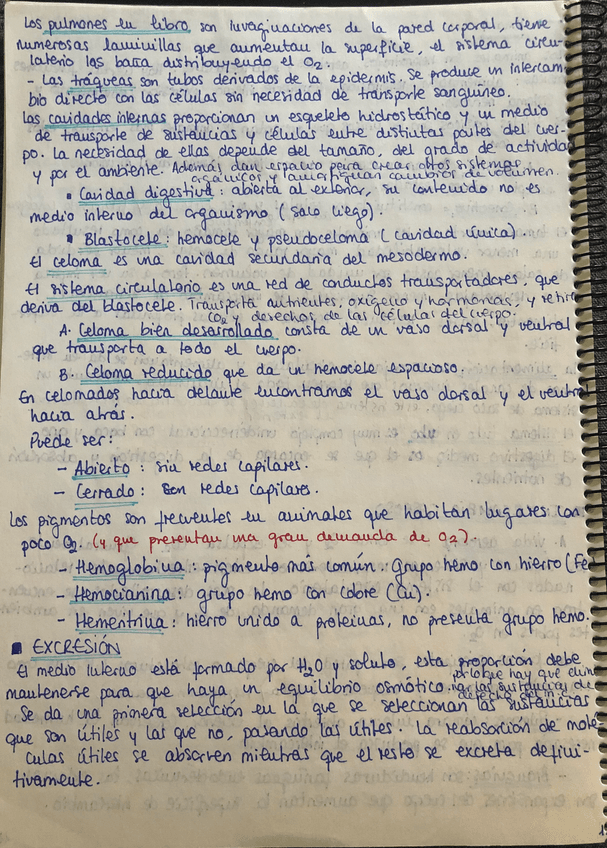 Los pulmones en libro son invaginaciones de la pared corporal, tiene
numerosas laminillas que aumentan la superficie, el sistema circu-
latorio los baña distribuyendo el O₂.
- Las tráqueas son tubos derivados de la epidermis. Se produce un intercam-
bio directo con las células sin necesidad de transporte sanguíneo.
Las cavidades internas proporcionan un esqueleto hidrostático y un medio
de transporte de sustancias y células entre distintas partes del cuer-
po. La necesidad de ellas depende del tamaño, del grado de actividad
y por el ambiente. Además dan espacio para crear otros sistemas
orgánicos y amortiguan cambios de volumen.
• Cavidad digestiva: abierta al exterior, su contenido no es
medio interno del organismo (saco ciego).
• Blastocele: hemocele y pseudoceloma (cavidad única)
El celoma es una cavidad secundaria del mesodermo.
El sistema circulatorio es una red de conductos transportadores, que
deriva del blastocele. Transporta nutrientes, oxígeno y hormonas, y retira
CO₂ y desechos de las células del cuerpo.
A. Celoma bien desarrollado consta de un vaso dorsal y ventral
que transporta a todo el cuerpo.
B. Celoma reducido que da un hemocele espacioso.
En celomados, hacia delante encontramos el vaso dorsal y el ventral
hacia atrás.
Puede ser:
- Abierto: sin redes capilares.
- Cerrado: son redes capilares.
Los pigmentos son frecuentes en animales que habitan lugares con
poco O₂. (y que presentan una gran demanda de O₂).
- Hemoglobina: pigmento más común. Grupo hemo con hierro (Fe
- Hemocianina: grupo hemo con cobre (Cu).
- Hemeritrina: hierro unido a proteínas, no presenta grupo hemo.
■ EXCRESIÓN
El medio interno está formado por H₂O y soluto, esta proporción debe
mantenerse para que haya un equilibrio osmótico, por lo que hay que elimi
nar las sustancias de desecho del
Se da una primera selección en la que se seleccionan las sustancias
que son útiles y las que no, pasando las útiles. La reabsorción de molé-
culas útiles se absorven mientras que el resto se excreta defini-
tivamente.